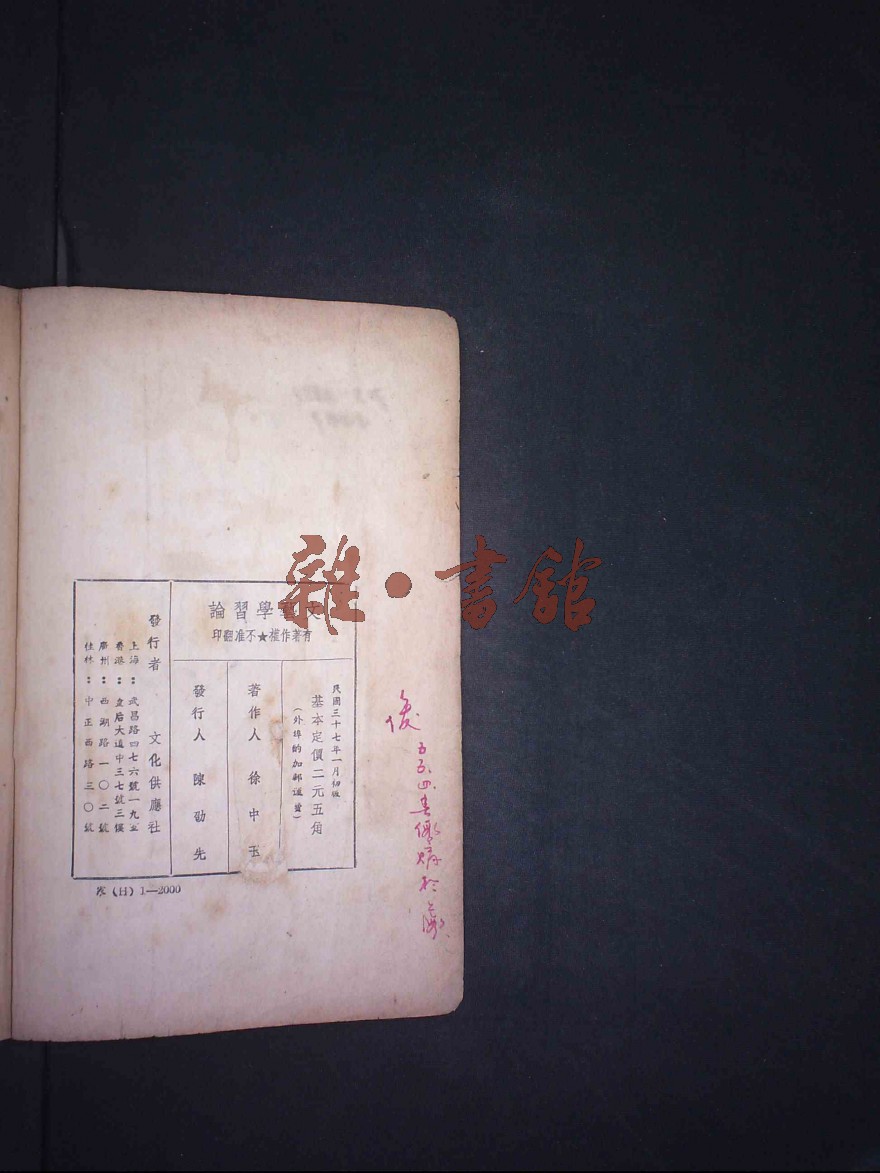 雜·書舘
文藝學習論
有著作權★不准翻印
民國三十七年一月初版
基本定價二元五角
(外埠酌加郵運費)
著作人 徐中玉
發行人 陳劭先
發行者 文化供應社
上海:武昌路四七六號一九五
香港:皇后大道中三七號三樓
廣州:西湖路一〇二號
桂林:中正西路三〇號
(H) 1—2000
五五.四.購於上海